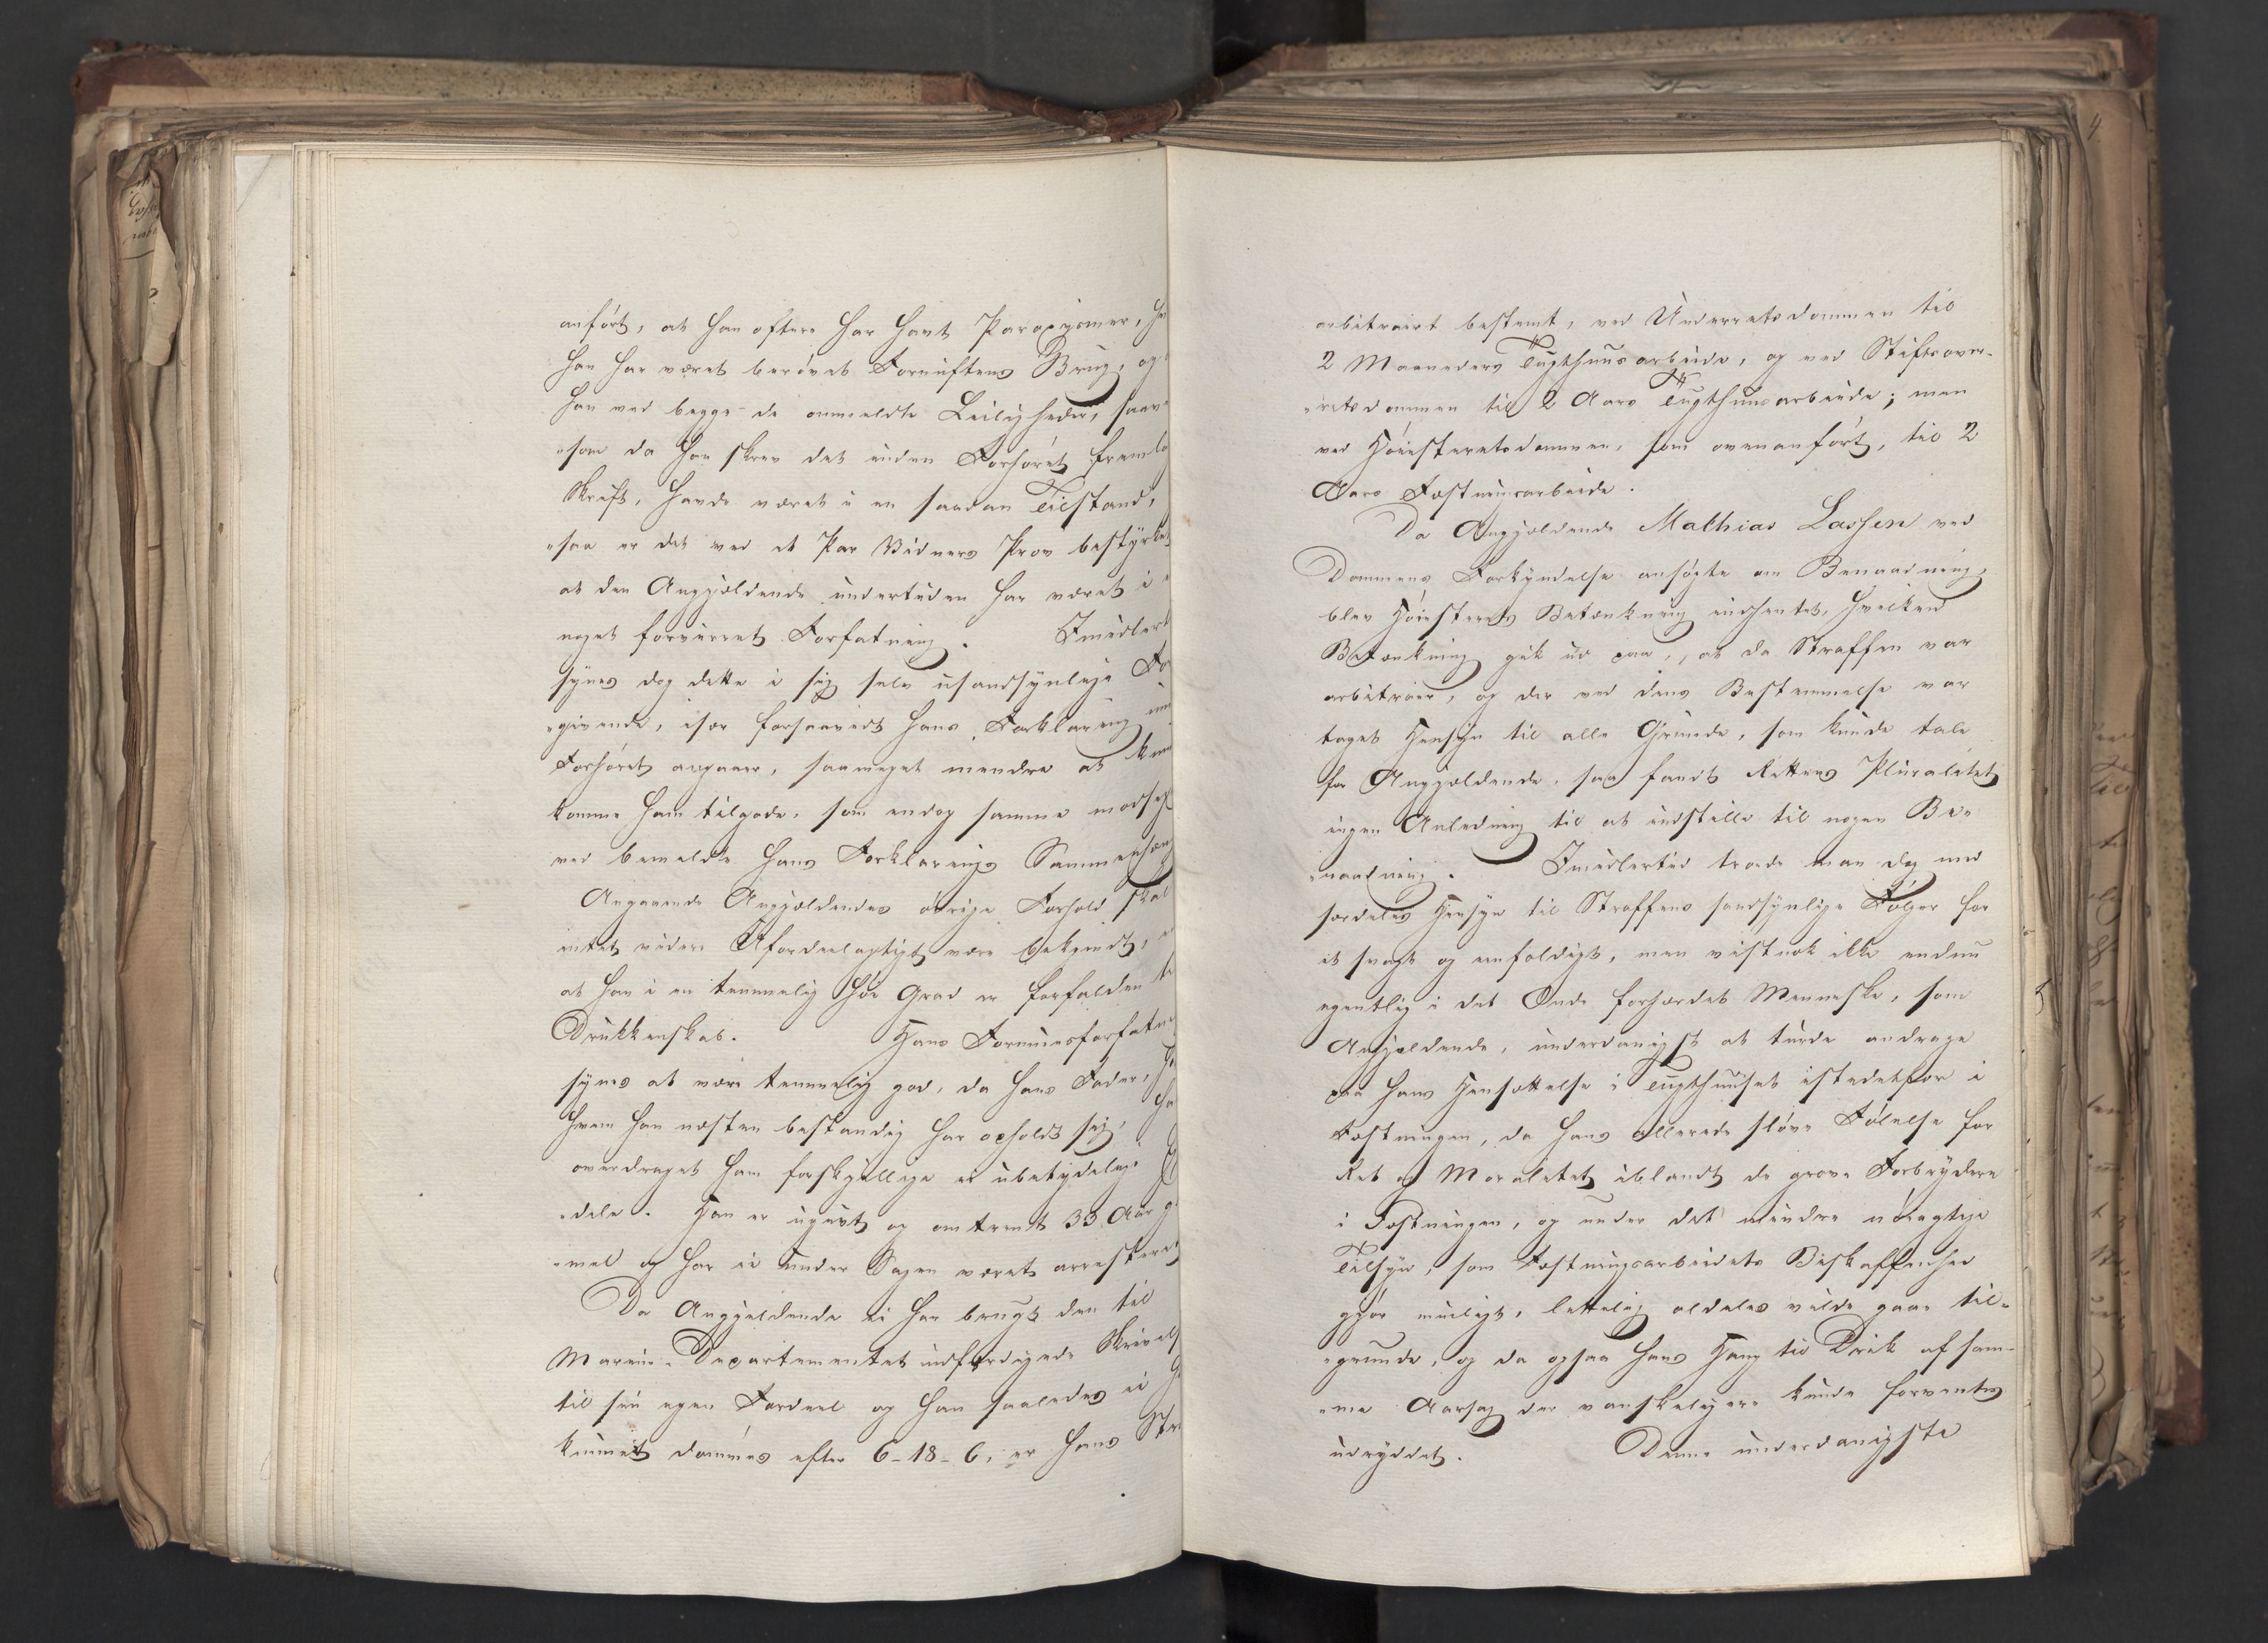 anført, at han oftere har havt Paroxysmer, h
han har været berøvet Fornuftens Brug, og
han ved begge de anmeldte Leiligheder, saav
"som da han skrev det inden Forhøret fremla
Skrift, havde været i en saadan Tilstand,
"saa er det ved et Par Vidners Prov bestyrket
at den Angjældende undertiden har været i
noget forvirret Forfatning. Imidlert
synes dog dette i sig selv usandsynlige Fo
"givende, især forsaavidt hans Forklaring
Forhøret angaaer, saameget mendre at kun
komme ham tilgode, som endog samme modsig
ved bemeldte hans Forklarings Sammenhæng
Angaaende Angjældendes øvrige Forhold skal
intet videre Ufordeelagtigt være bekjendt,
at han i en temmelig høi Grad er forfalden t
Drukkenskab. Hans Formuesforfatn
synes at være temmelig god, da hans Fader, h
hvem han næsten bestandig har opholdt sig, ha
overdraget ham forskjellige ei ubetydelige E
"dele. Han er ugivt og omtrent 33 Aar g
"mel og har ei under Sagen været arresteret
Da Angjeldende ei har brugt den til
Marine-Departementet indfærdigede Skrivel
til sin egen Fordeel og han saaledes ei h
kunnet dømmes efter 6-18-6, er hans Str
arbitrairt bestemt, ved Underretsdommen til
2 Maaneders Tugthuusarbeide, og ved Stiftsover-
"retsdommen til 2 Aars Tugthuusarbeide; men
ved Høiesteretsdommen, som ovenanført, til 2
Aars Fæstningsarbeide.
Da Angjældende Mathias Lassen ved
Dommens Forkyndelse ansøgte om Benaadning,
blev Høiesterets Betænkning indhentet, hvilken
Betænkning gik ud paa, at da Straffen var
arbitrair, og der ved dens Bestemmelse var
taget Hensyn til alle Grunde, som kunde tale
for Angjældende, saa fandt Rettens Pluralitet
ingen Anledning til at indstille til nogen Be-
"naadning. Imidlertid troede man dog med
særdeles Hensyn til Straffens sandsynlige Følger for
et svagt og eenfoldigt, men vistnok ikke endnu
egentlig i det Onde forhærdet Menneske, som
Angjældende, underdanigst at turde andrage
paa hans Hensættelse i Tugthuuset istedetfor i
Fæstningen, da hans allerede sløve Følelse for
Ret og Moralitet iblandt de grove Forbrydere
i Fæstningen, og under det mindre nøiagtige
Tilsyn, som Fæstningsarbeidets Beskaffenhed
gjør muligt, lettelig aldeles vilde gaae til-
"grunde, og da ogsaa hans Hang til Drik af sam-
"me Aarsag der vanskeligere kunde forventes
udryddet. Denne underdanigste